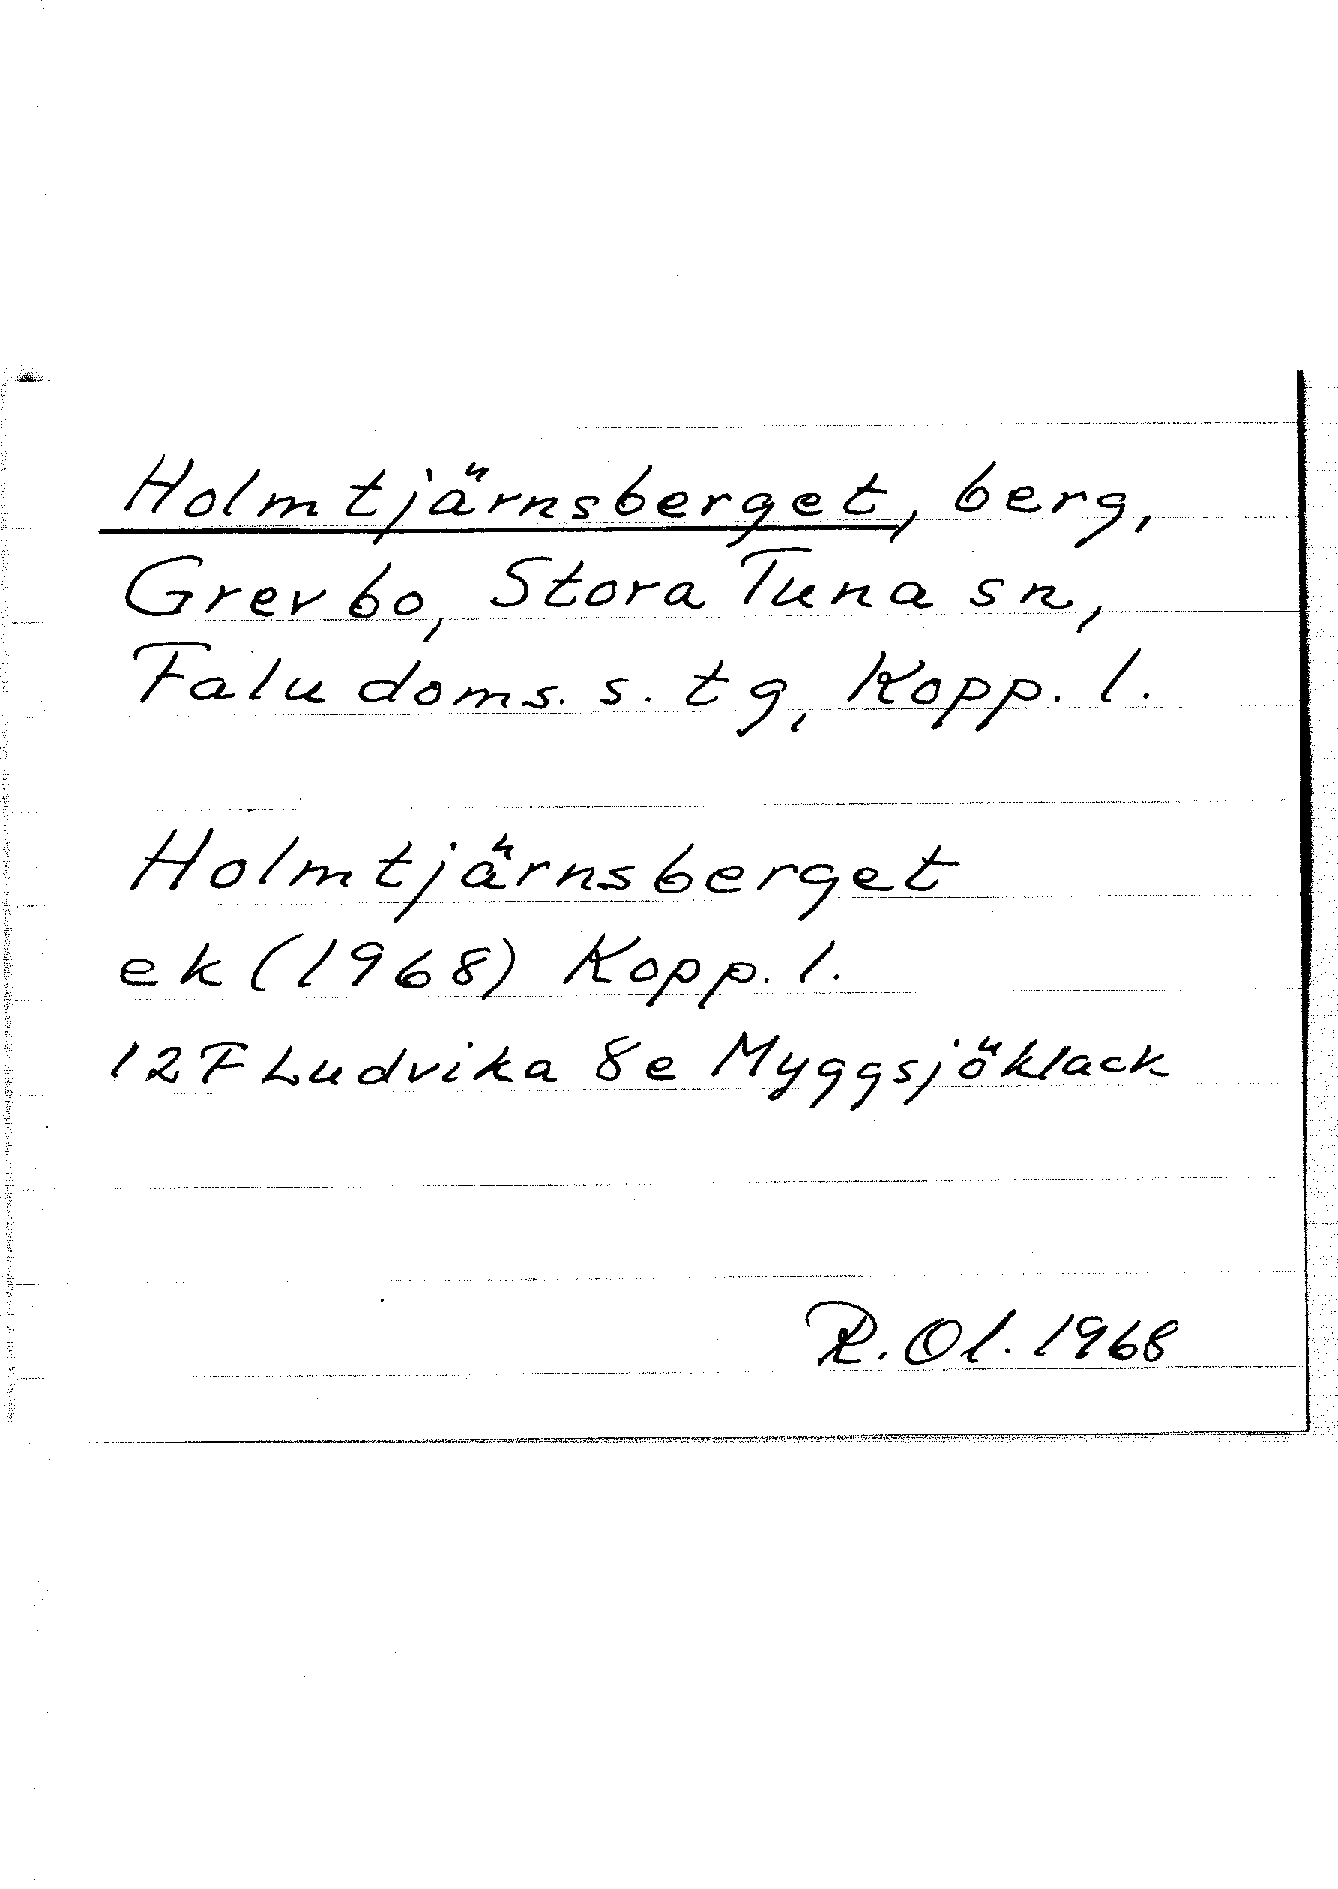 Holmtjärnsberget, berg,
Grevbo, Stora Tuna sn,
Falu doms. s. tg, Kopp. l.
Holmtjärnsberget
ek (1968) Kopp. l.
12F Ludvika 8e Myggsjöklack
R. Ol. 1968